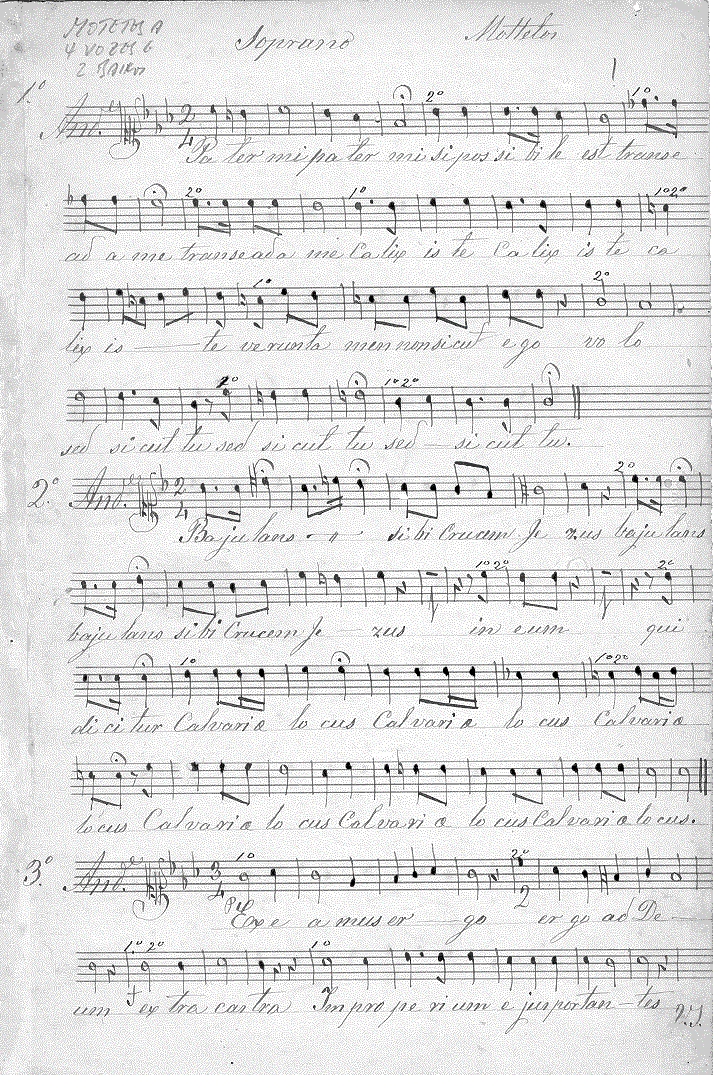 MOTETOS A
4 VOZES E
2 BAIXOS
Soprano
Mottetos
1
1.º
And.e
2
4
2º
1º
Pa ter mi pa ter mi si pos si bi le est transe
2º
1º
1º 2º
ad a me transeada me Calix is te Ca lix is te ca
1º
2º
lix is te verunta mennonsicut ego vo lo
2º
1º 2º
sed si cut tu sed si cut tu sed si cut tu.
2.º
And.e
2
4
2º
Bajulans si bi Crucem Je zus bajulans
1º 2º
2º
bajulans sibi Crucem Je zus in eum qui
1º
1º 2º
di ci tur Calvariæ lo cus Calvariæ lo cus Calvariæ
locus Calvariæ lo cus Calvariæ lo cus Calvariæ locus.
3.º
And.e
3
4
1º
2º
2
Exe a mus er go er go ad De
1º 2º
1º
um ex tra castra Impro pe ri um e jusportan tes
V.S.